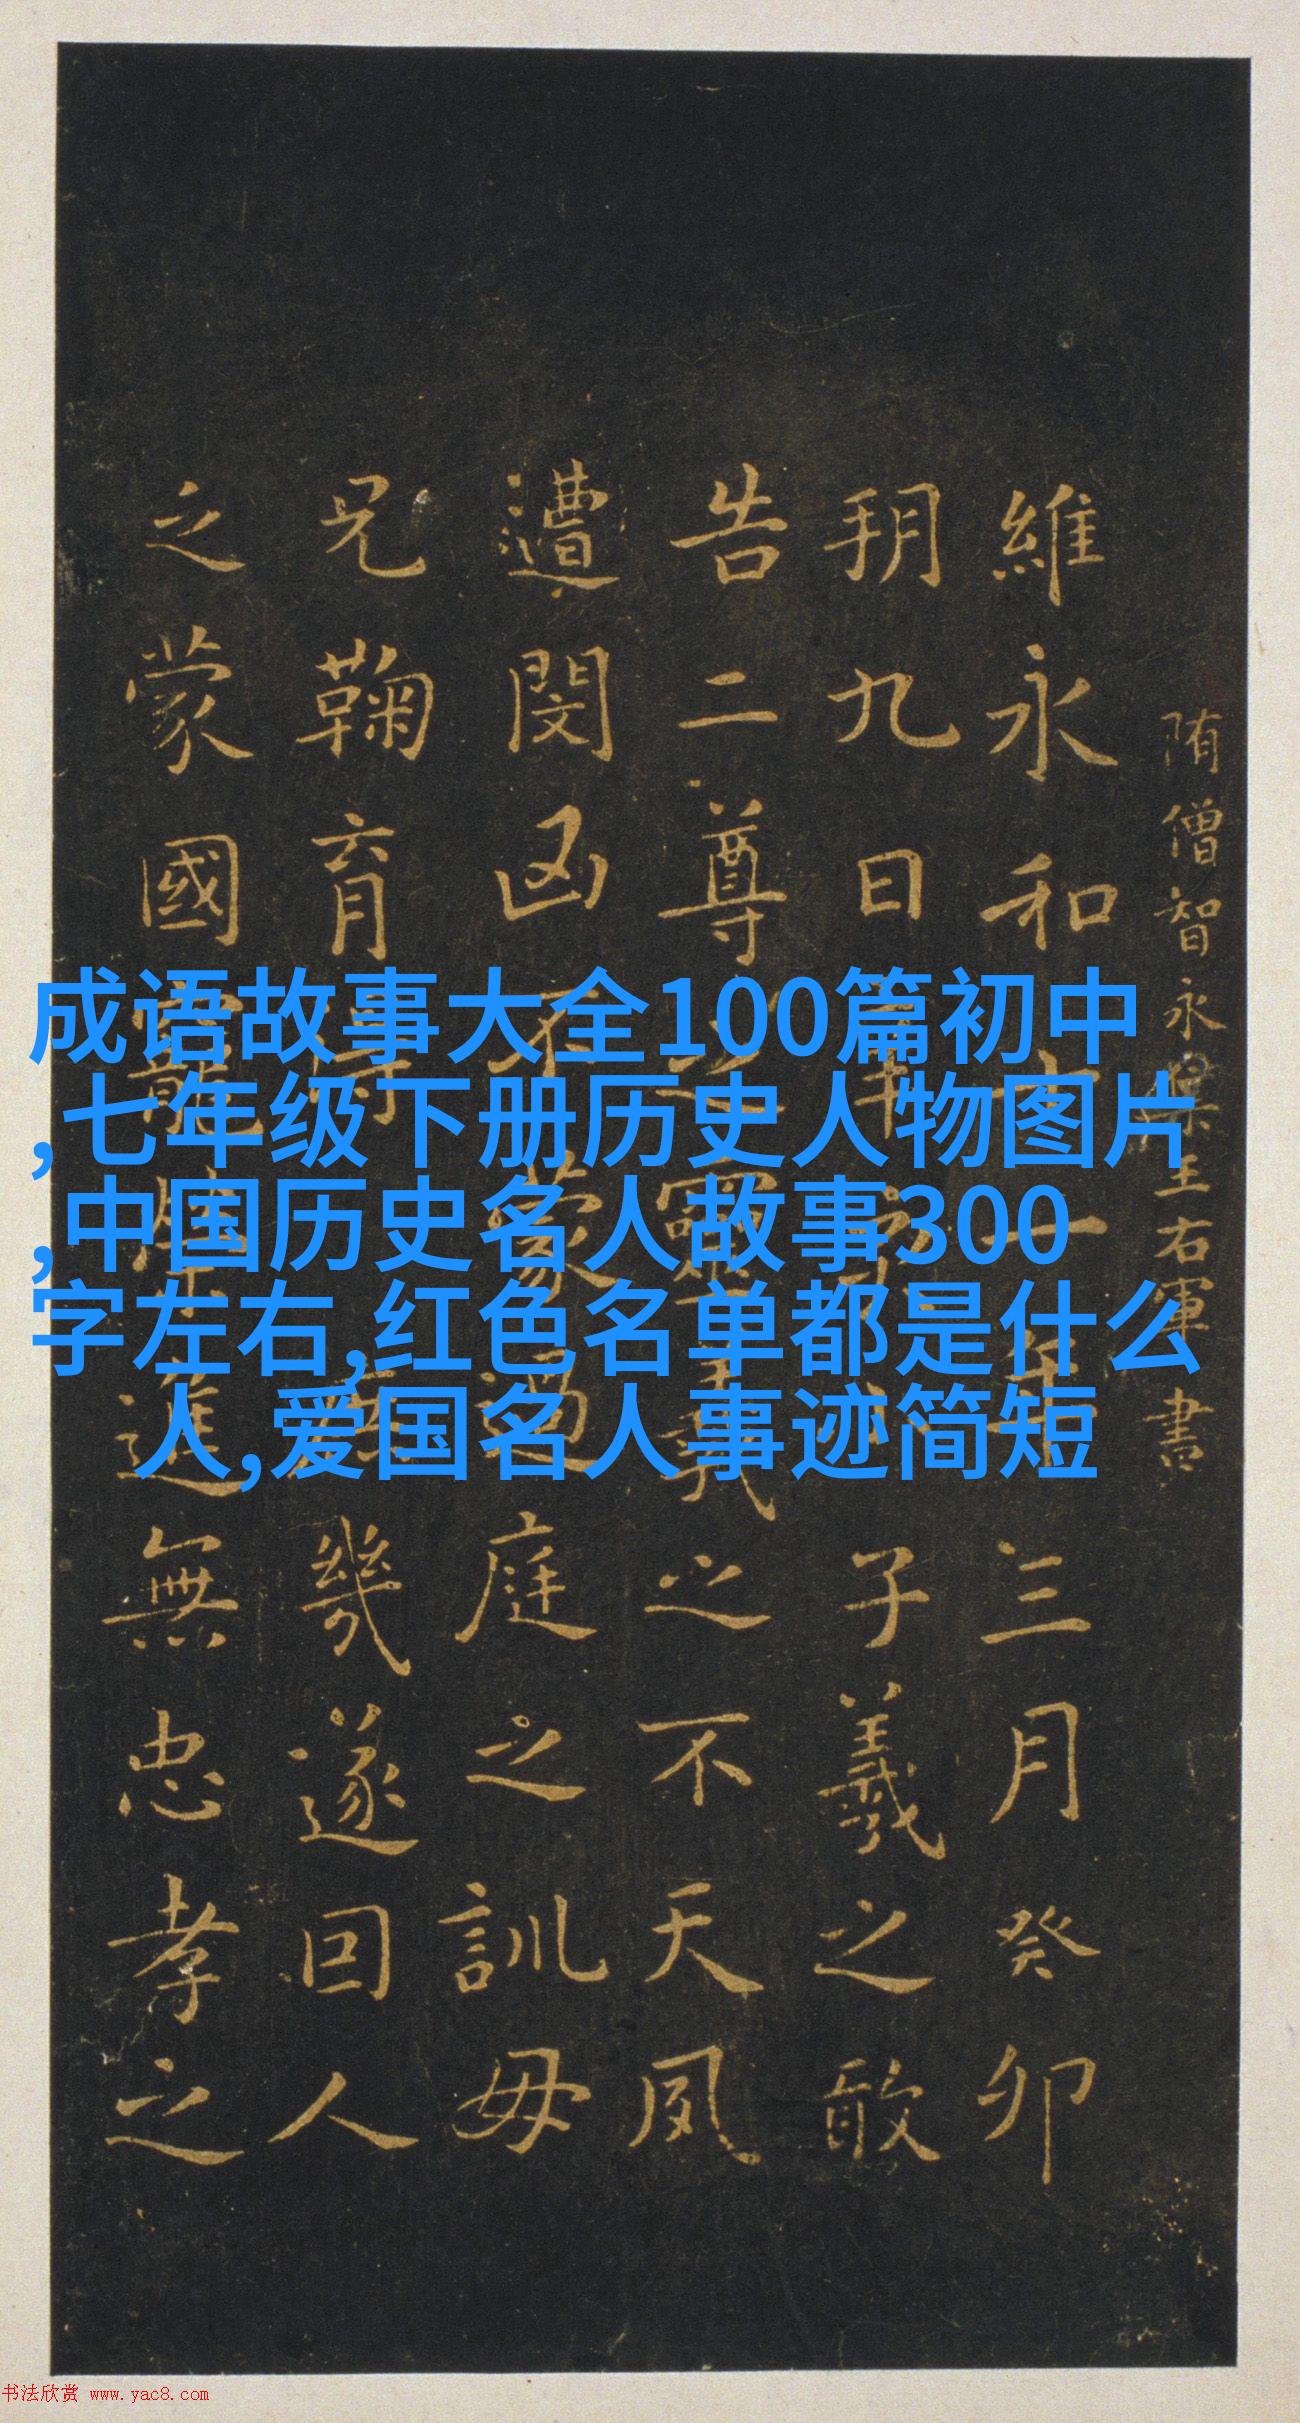 隋僧智永臨王右軍書
維永和十一年三月癸卯
朔九日辛亥小子羲之敢
告二尊之靈羲之不天夙
遭閔凶不蒙過庭之訓母
兄鞠育得庶幾遂回人
之蒙國寵榮進無忠孝之
成语故事大全100篇初中
,七年级下册历史人物图片
,中国历史名人故事300
字左右,红色名单都是什么
人,爱国名人事迹简短
书法欣赏 www.yac8.com